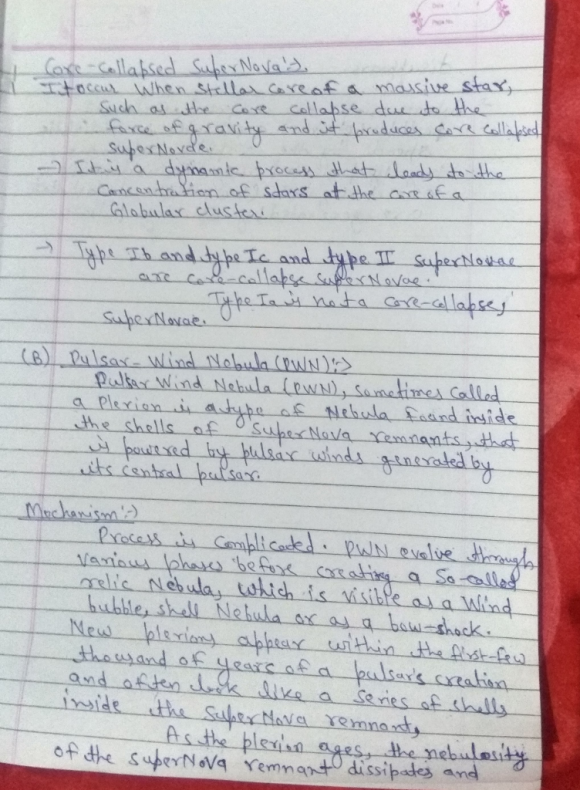 Core-Collapsed SuperNova:→
It occur when stellar core of a massive star,
Such as the core collapse due to the
force of gravity and it produces core collapsed
SuperNovae.
→ It is a dynamic process that leads to the
Concentration of stars at the core of a
Globular cluster.
→ Type Ib and type Ic and type II SuperNovae
are core-collapse SuperNovae.
Type Ia is not a core-collapse,
SuperNovae.
(B) Pulsar-Wind Nebula (PWN):→
Pulsar Wind Nebula (PWN), sometimes called
a Plerion is a type of Nebula found inside
the shells of SuperNova remnants, that
is powered by pulsar winds generated by
its central pulsar.
Mechanism:→
Process is Complicated. PWN evolve through
various phases before creating a so-called
relic Nebula, which is visible as a Wind
bubble, shell Nebula or as a bow-shock.
New plerions appear within the first-few
thousand of years of a pulsar's creation
and often look like a series of shells
inside the SuperNova remnant,
As the plerion ages, the nebulosity
of the superNova remnant dissipates and